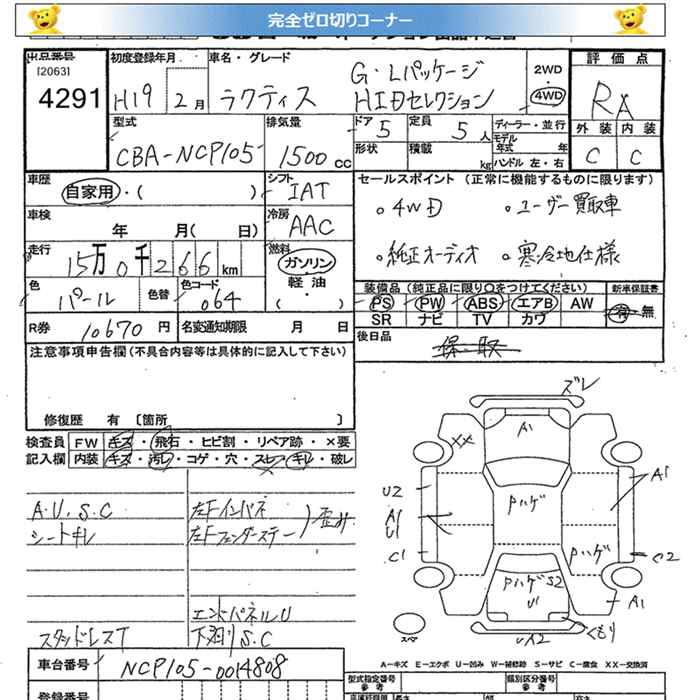 完全ゼロ切りコーナー
出品番号
[2063]
4291
初度登録年月
H19年2月
車名・グレード
ラクティス
G・Lパッケージ
HIDセレクション
2WD
・
4WD
評価点
RA
外装 内装
C C
型式
CBA-NCP105
排気量
1500cc
ドア
5
定員
5人
形状
積載
kg
ディーラー・並行
モデル
年式 年
ハンドル 左・右
車歴
自家用・( )
シフト
IAT
車検
年 月( 日)
冷房
AAC
走行
15万0千266km
燃料
ガソリン
軽油
・( )
色
パール
色替
色コード
064
R券 10670円
名変通知期限 月 日
セールスポイント (正常に機能するものに限ります)
。4WD 。ユーザー買取車
。純正オーディオ 。寒冷地仕様
装備品 (純正品に限り○をつけてください)
新車保証書
PS PW ABS エアB AW
SR ナビ TV カワ
有・無
後日品
保・取
注意事項申告欄(不具合内容等は具体的に記入して下さい)
修復歴 有 〔箇所 〕
検査員 FW キズ・飛石・ヒビ割・リペア跡・×要
記入欄 内装 キズ・汚レ・コゲ・穴・スレ・キレ・破レ
A.U.S.C
シートキレ
左Fインパネ
左Fフェンダーステー
歪み
エンドパネルU
スタッドレスT
下廻りS.C
ズレ
A1
XX
U2
Pハゲ
A1
A1
U1
C1
Pハゲ
C2
Pハゲ S2
U1
A1
くもり
スペア
A-キズ E-エクボ U-凹み W-補修跡 S-サビ C-腐食 XX-交換済
車台番号
NCP105-0014808
登録番号
型式指定番号
参考
類別区分番号
参考